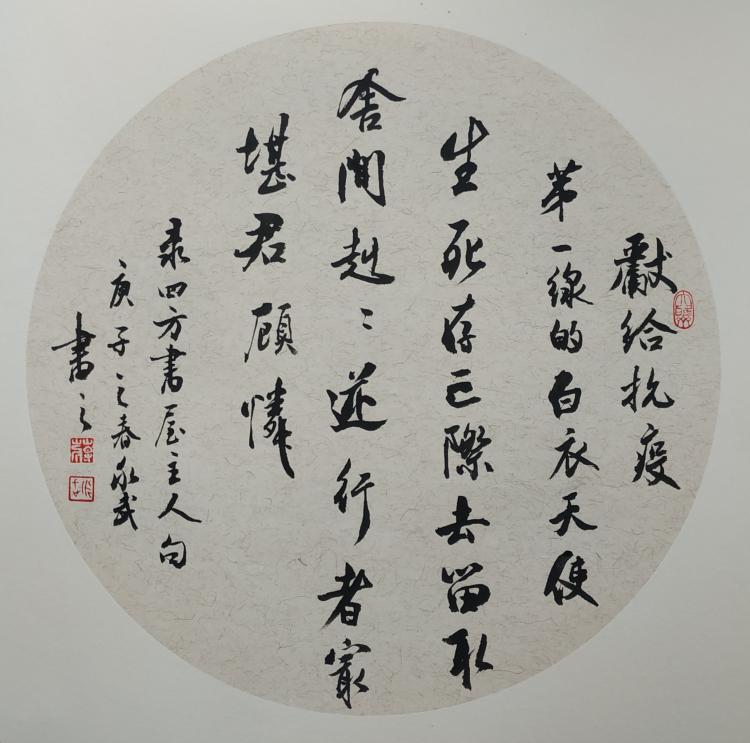 獻給抗疫
第一線的白衣天使
生死存亡際去留取
舍間赳〻逆行者最
堪君顧憐
录四方書屋主人句
庚子之春永武
書之